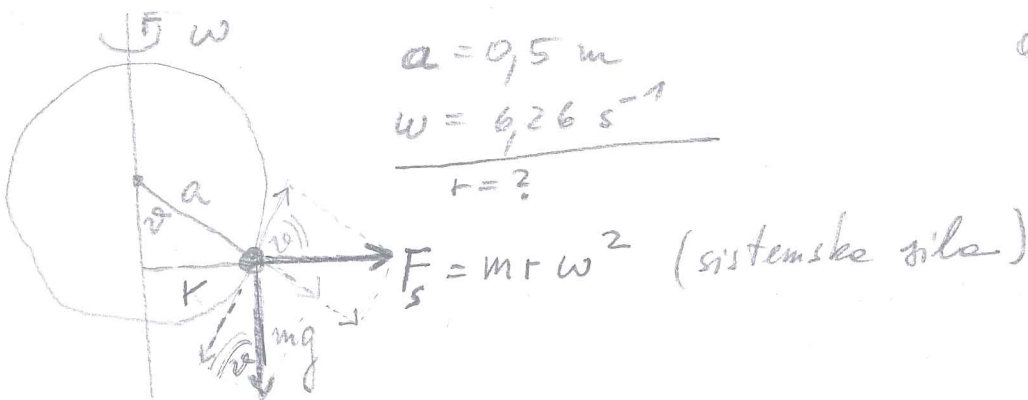 ω
a = 0,5 m
ω = 6,26 s⁻¹
r = ?
a
ϑ
ϑ
r
F_s = m r ω² (sistemska sila)
ϑ
mg